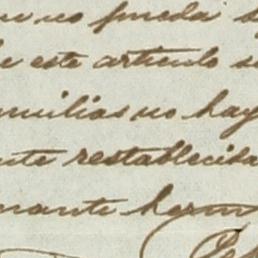 no pueda
este articulo
milias no hay
nte restablecida
mante herm